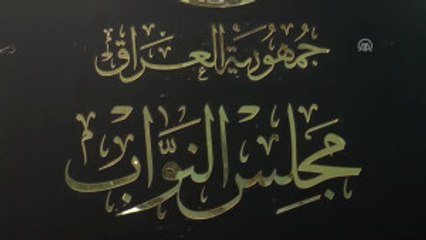 جمهورية العراق
مجلس النواب